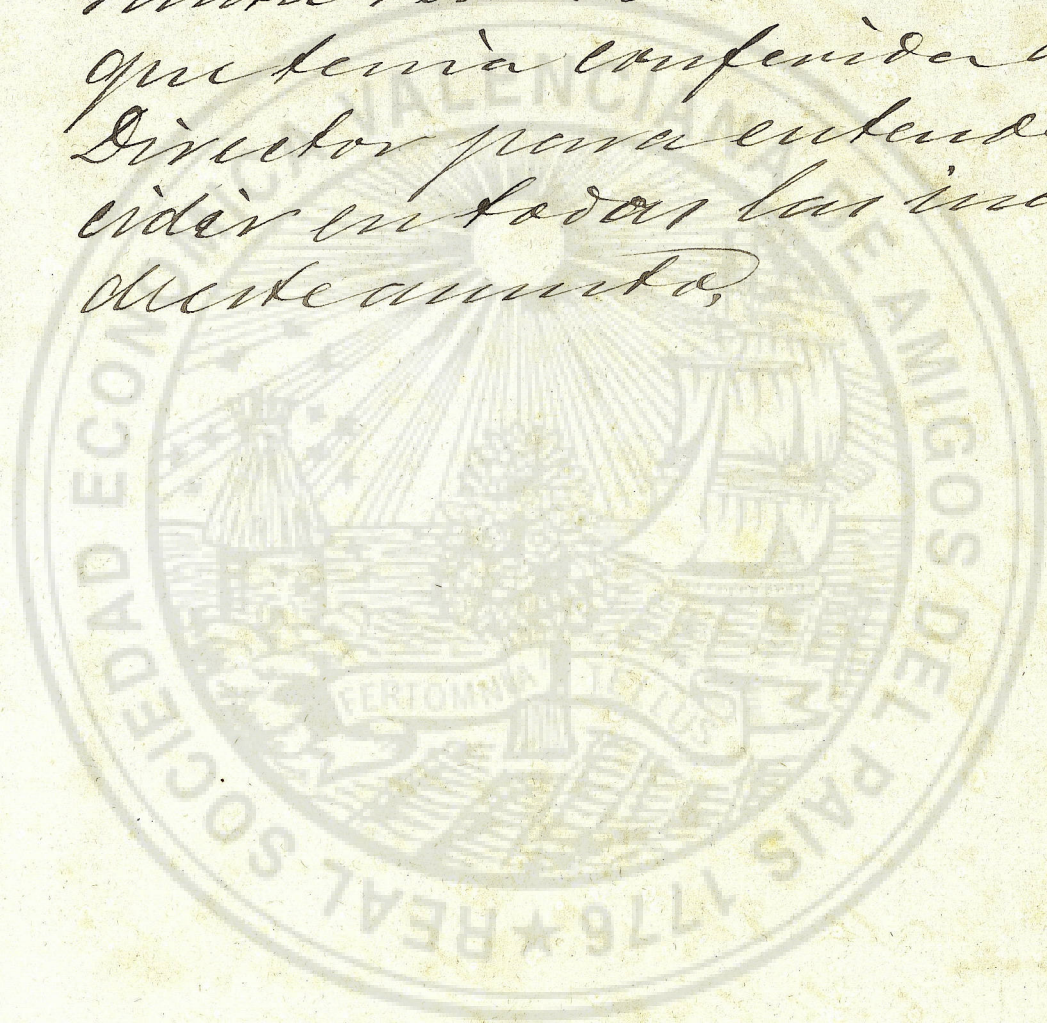 que tenia conferida
Director para entende
cidir en todas las inc
de este asunto.
REAL SOCIEDAD ECONOMICA VALENCIANA DE AMIGOS DEL PAIS 1776 ★
FERT OMNIA TELLUS